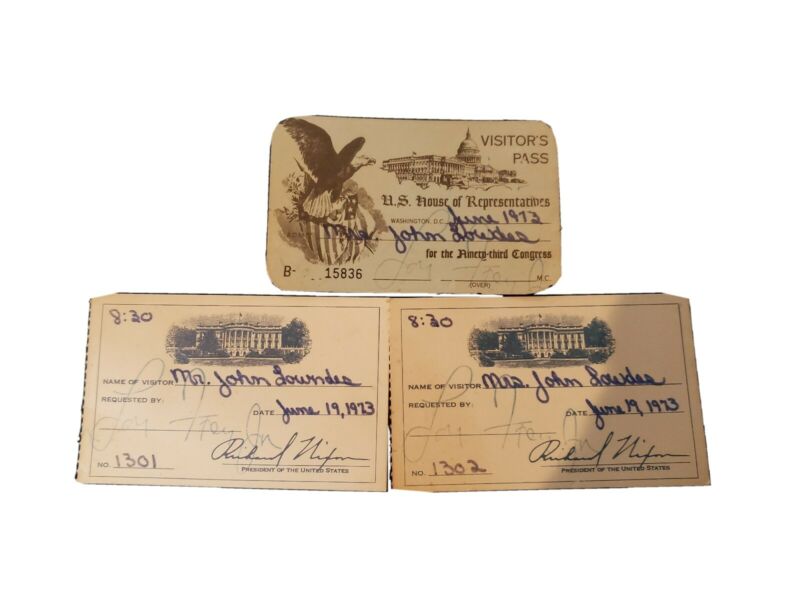 VISITOR'S
PASS
U.S. House of Representatives
WASHINGTON, D.C. June 1973
Mrs. John Lowdes
for the Ninety-third Congress
B- 15836
M.C.
(OVER)
8:30
NAME OF VISITOR Mr. John Lowndes
REQUESTED BY:
DATE June 19, 1973
Richard Nixon
NO. 1301
PRESIDENT OF THE UNITED STATES
8:30
NAME OF VISITOR Mrs. John Lowdes
REQUESTED BY:
DATE June 19, 1973
Richard Nixon
NO. 1302
PRESIDENT OF THE UNITED STATES